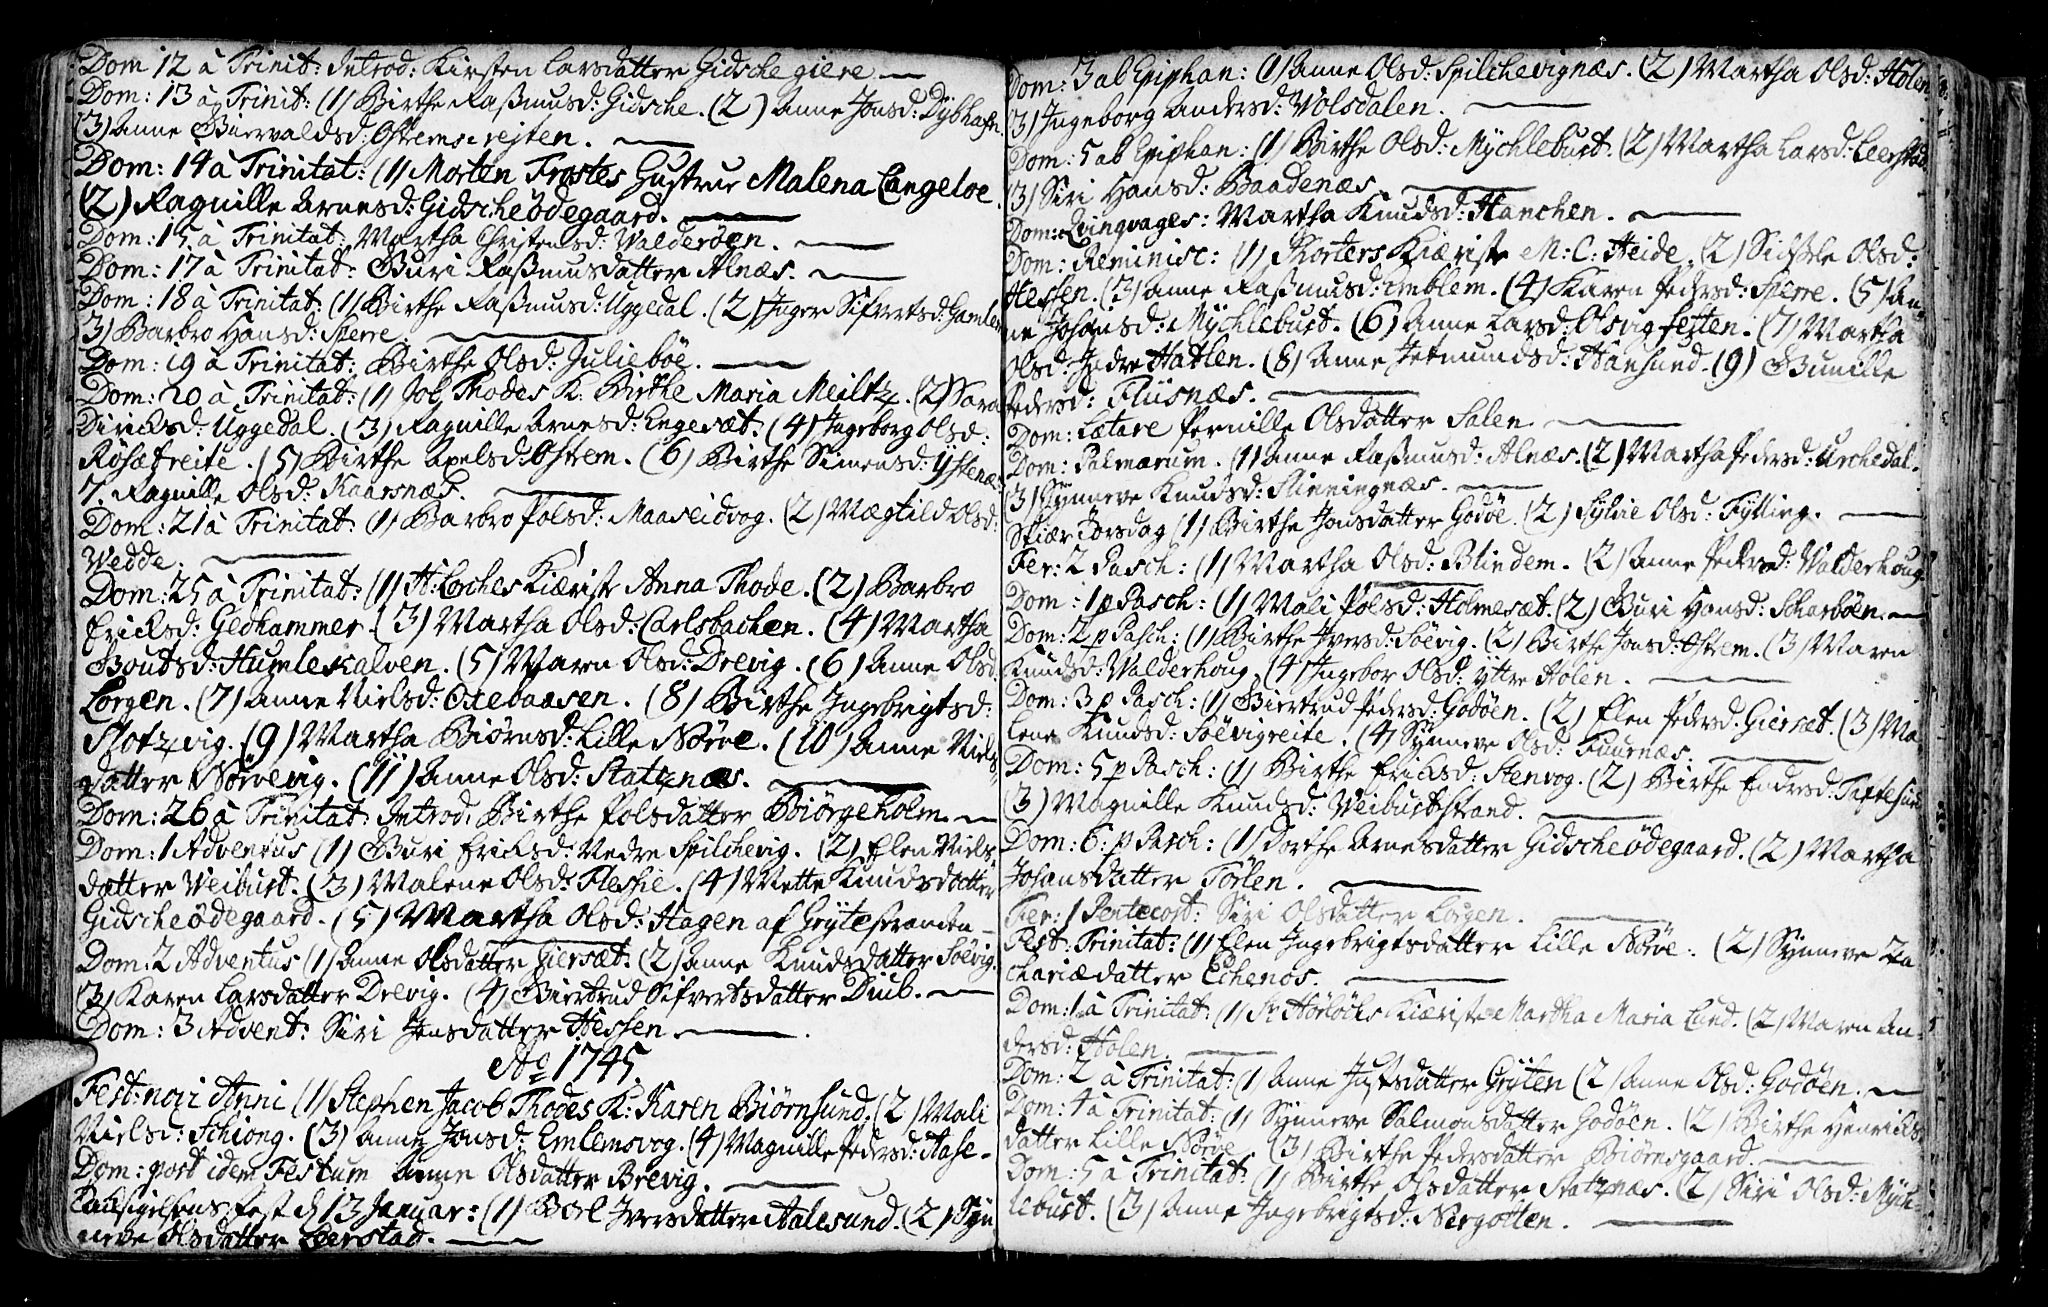 Dom 12 à Trinit: Introd: Kirsten Larsdatter Gidsche giere
Dom: 13 à Trinit: (1) Birthe Raßmusd: Gidsche. (2) Anne Jonsd: Dÿbhafn
(3) Anne Biervaldsd: Østremsrejten.
Dom: 14 à Trinitat: (1) Morten Frostes Hustrue Malena Langeloe.
(2) Ragnille Arnesd: Gidscheødegaard.
Dom: 15 à Trinitat: Martha Christensd: Walderöen.
Dom: 17 à Trinitat: Guri Raßmusdatter Alnæs.
Dom: 18 à Trinitat: (1) Birthe Raßmusd: Uggedal. (2) Inger Sifvertsd: Gamlem
3) Barbro Hansd: Sperre.
Dom: 19 à Trinitat: Birthe Olsd: Julieböe.
Dom: 20 à Trinitat: (1) Joh Thodes K: Birthe Maria Meiltz. (2) Sara
Diricksd: Uggedal. (3) Ragnille Arnesd: Engesæt. (4) Ingeborg Olsd:
Røsæfreite. (5) Birthe Apelsd: Østrem. (6) Birthe Simensd: Ystenæs
7. Ragnille Olsd: Kaarsnæs.
Dom: 21 à Trinitat: (1) Barbro Polsd: Maaseidvog. (2) Mægtild Olsd:
Wedde.
Dom: 25 à Trinitat: (1) H: Loches Kiæriste Anna Thode. (2) Barbro
Ericksd: Gedhammer. (3) Martha Olsd: Carlsbachen. (4) Martha
Boutsd: Humleskalven. (5) Maren Olsd: Drevig. (6) Anne Olsd
Lorgen. (7) Anne Nielsd: Oxebaasen. (8) Birthe Ingebrigtsd:
Flotzvig. (9) Martha Biörnsd: Lille Nörve. (10) Anne Niels
datter Nörvevig. (11) Anne Olsd: Statznæs.
Dom: 26 à Trinitat: Introd: Birthe Polsdatter Biörgeholm.
Dom: 1 Adventus (1) Guri Ericksd: Nedre Spilchevig. (2) Elen Niels
datter Veibust. (3) Malene Olsd: Flesfie. (4) Mette Knudsdatter
Gidscheödegaard. (5) Martha Olsd: Hagen af Grÿtestranden
Dom: 2 Adventus (1) Anne Olsdatter Giersæt. (2) Anne Knudsdatter Söevig.
(3) Karen Larsdatter Drevig. (4) Biertrud Sifvertsdatter Diub.
Dom: 3 Advent: Siri Jonsdatter Hessen
Ao 1745
Fest: novi Anni (1) Stephen Jacob Thodes K: Karen Biörnsund. (2) Mali
Nielsd: Schiong. (3) Anne Jonsd: Emlemsvog. (4) Magnille Pedersd: Aase.
Dom: post idem Festum Anne Olsdatter Brevig.
Taksigelsens Fest d 13 Januar: (1) Boel Iversdatter Aalesund. (2) Syn
neve Olsdatter Leerstad.
Dom: 3 ab Epiphan: (1) Anne Olsd: Spilchevignæs. (2) Martha Olsd: Holen
3) Ingeborg Andersd: Volsdalen.
Dom: 5 ab Epiphan: (1) Birthe Olsd: Mÿchlebust. (2) Martha Larsd: Leerstad
3) Siri Hansd: Baadenæs.
Dom: Qvinqvages: Martha Knudsd: Hanchen.
Dom: Reminisc: (1) Korters Kiæriste M: C: Heide. (2) Sidsele Olsd:
Hessen. (3) Anne Raßmusd: Emblem. (4) Karen Pedersd: Sperre. (5) An
ne Johansd: Mÿchlebust. (6) Anne Larsd: Olsvigfejten. (7) Martha
Olsd: Indre Hatlen. (8) Anne Jetmundsd: Hansund. (9) Gunille
Pedersd: Fliisnæs.
Dom: Lætare Pernille Olsdatter Salen
Dom: Palmarum. (1) Anne Raßmusd: Alnæs. (2) Martha Pedersd: Urchedal.
(3) Sÿnneve Knudsd: Flinningnæs.
Skiær Torsdag (1) Birthe Jonsdatter Godöe. (2) Sÿlvie Olsd: Fÿlling.
Fer: 2 Pasch: (1) Martha Olsd: Blindem. (2) Anne Pedersd: Walderhoug
Dom: 1 p Pasch: (1) Mali Polsd: Holmesæt. (2) Guri Hansd: Scharböen.
Dom: 2 p Pasch: (1) Birthe Iversd: Söevig. (2) Birthe Jonsd: Østrem. (3) Maren
Knudsd: Walderhoug. (4) Ingebor Olsd: ÿttre Holen.
Dom: 3 p Pasch: (1) Biertrud Pedersd: Godöen. (2) Elen Pedersd: Giersæt. (3) Ma-
lene Knudsd: Söevigreite. (4) Sÿnneve Olsd: Fuurnæs.
Dom: 5 p Pasch: (1) Birthe Ericksd: Stenvog. (2) Birthe Endresd: Tiftesund
(3) Magnille Knudsd: Veibustestrand.
Dom: 6: p Pasch: (1) Dorthe Arnesdatter Gidscheödegaard. (2) Martha
Johansdatter Törlen.
Fer: 1 Pentecost: Siri Olsdatter Lorgen.
Fest: Trinitat: (1) Elen Ingebrigtsdatter Lille Nörve: (2) Sÿnneve Za
chariædatter Echenos.
Dom: 1 à Trinitat: (1) Sr Hörlöcks Kiæriste Martha Maria Lund. (2) Maren An-
dersd: Holen.
Dom: 2 à Trinitat: (1) Anne Justsdatter Grÿten (2) Anne Olsd: Godöen.
Dom: 4 à Trinitat: (1) Sÿnneve Salmonsdatter Godöen. (2) Birthe Henrichs
datter Lille Nörve. (3) Birthe Pedersdatter Biörnsgaard.
Dom: 5 à Trinitat: (1) Birthe Olsdatter Statznæs. (2) Siri Olsd: Mÿch-
lebust. (3) Anne Ingebrigtsd: Nergotten.